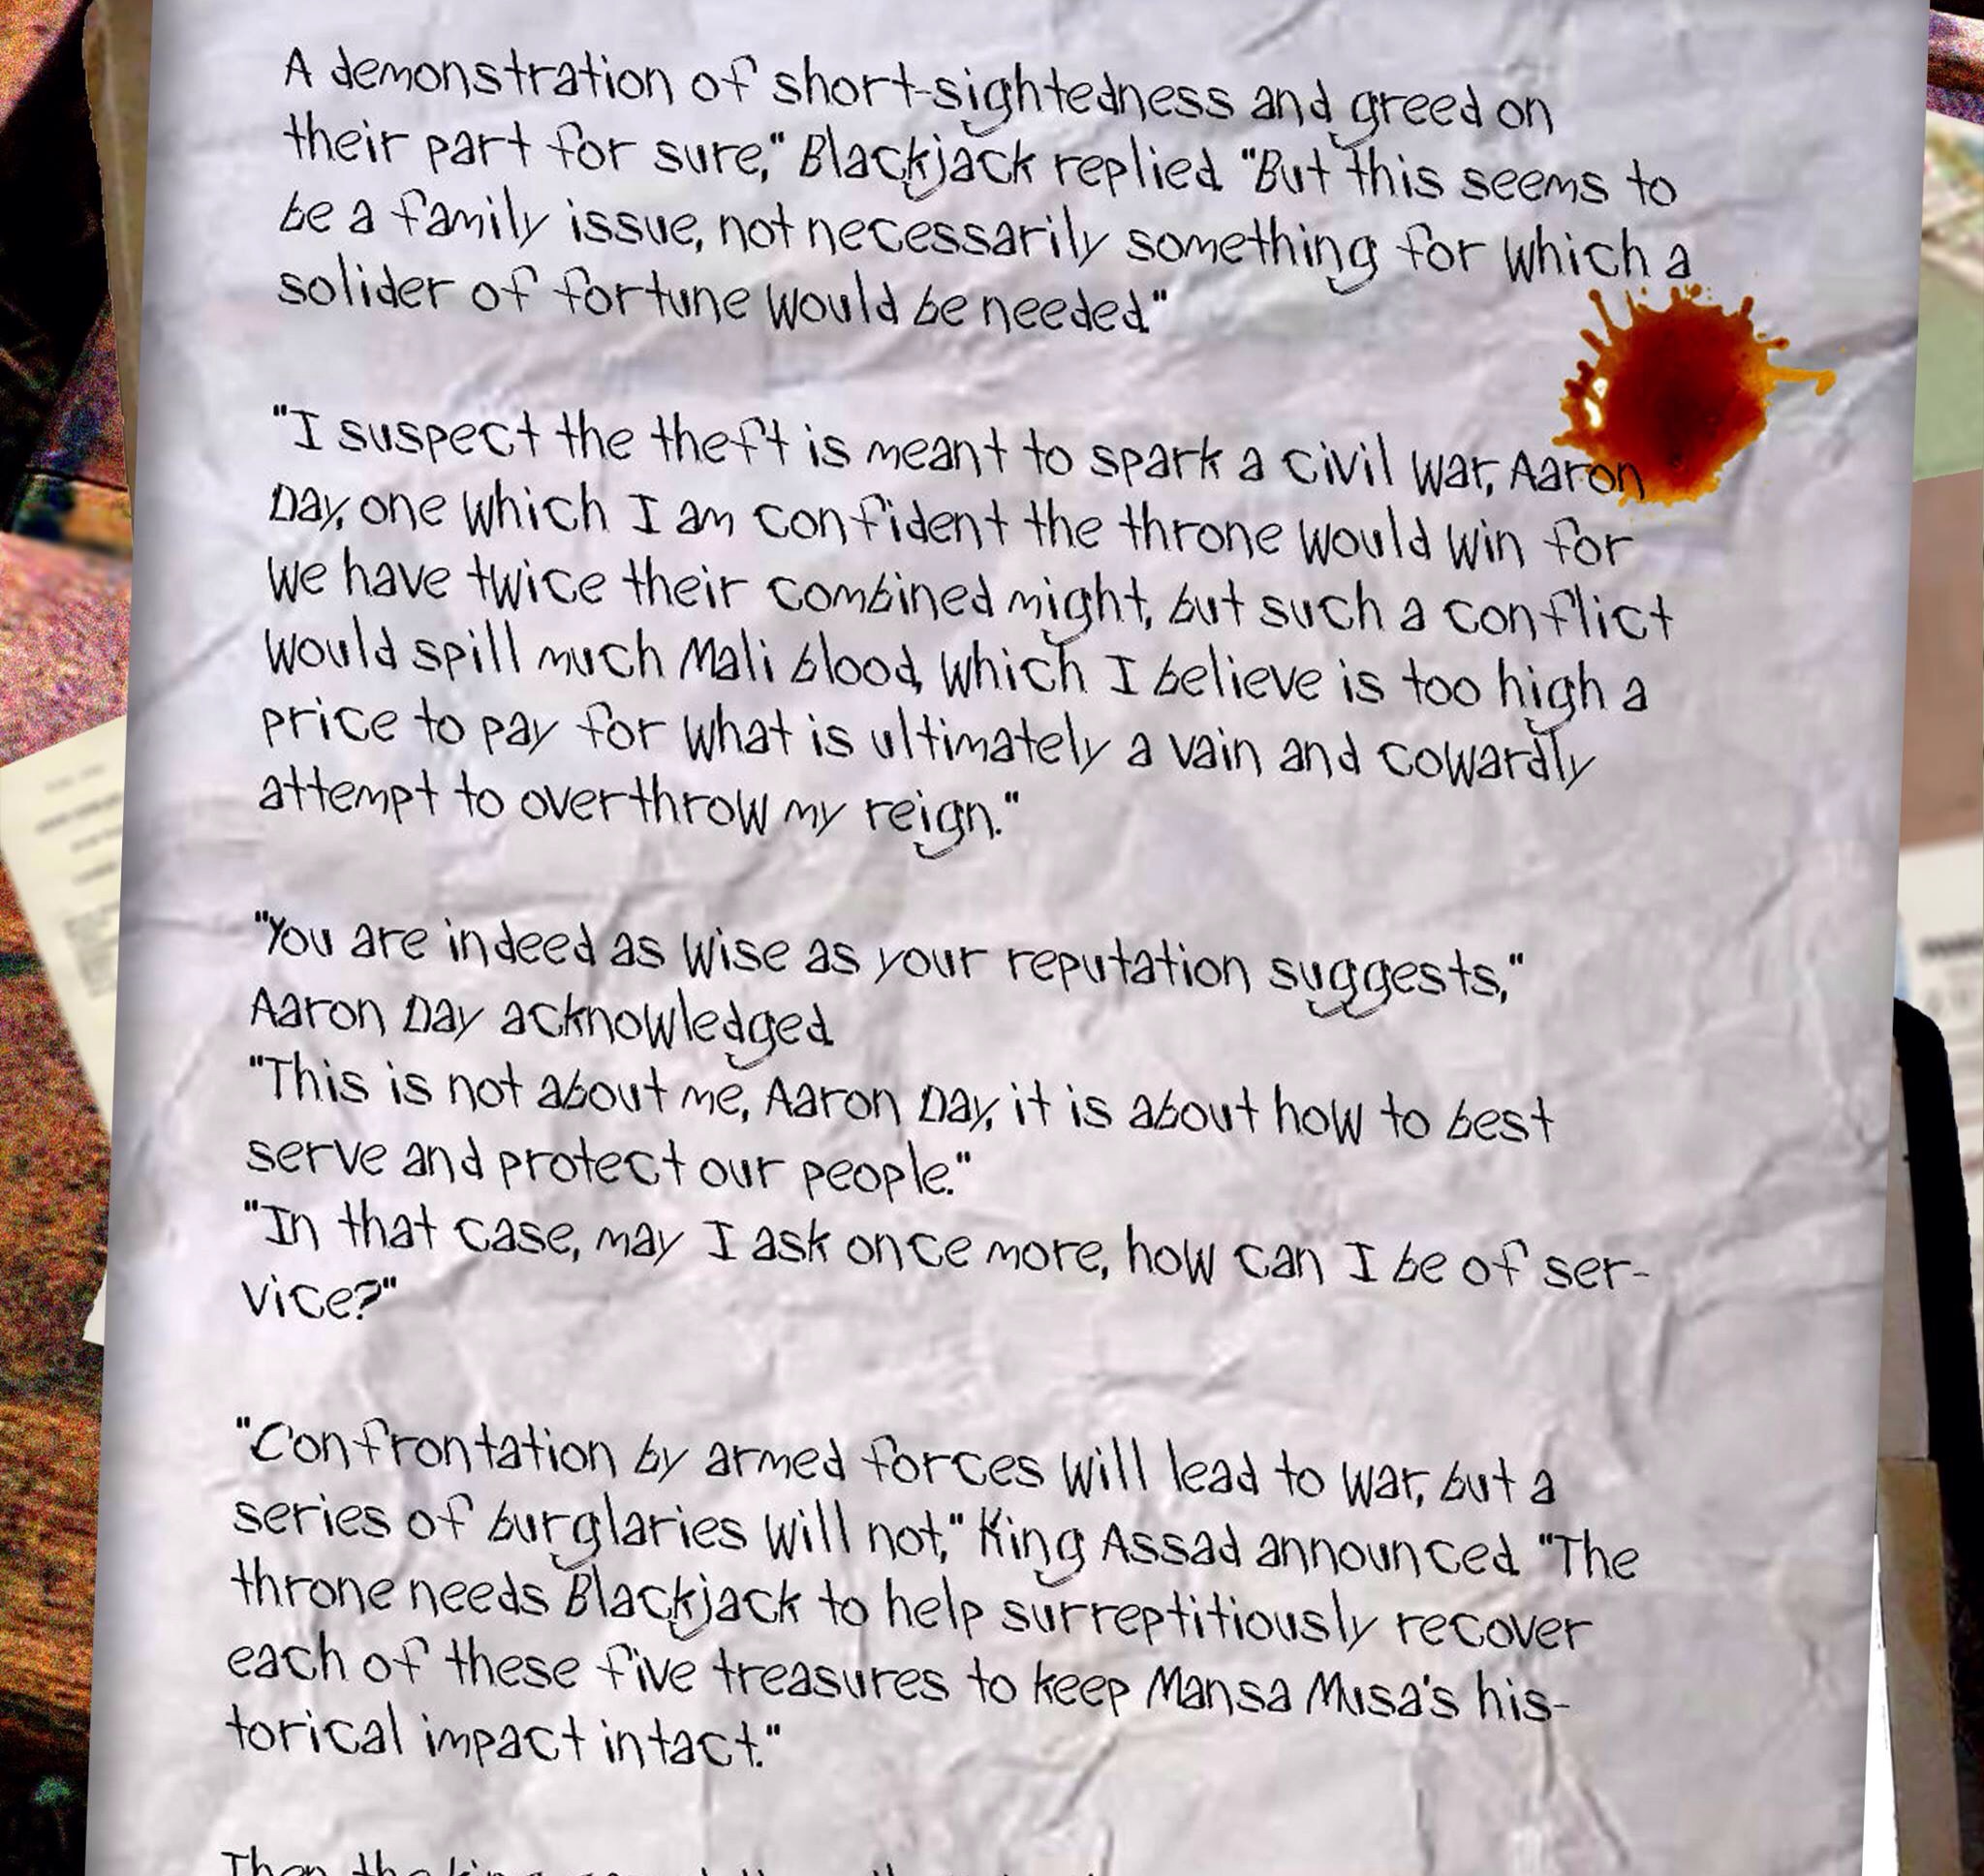 A demonstration of short-sightedness and greed on
their part for sure," Blackjack replied. "But this seems to
be a family issue, not necessarily something for which a
solider of fortune would be needed."
"I suspect the theft is meant to spark a civil war, Aaron
Day, one which I am confident the throne would win for
we have twice their combined might, but such a conflict
would spill much Mali blood, which I believe is too high a
price to pay for what is ultimately a vain and cowardly
attempt to overthrow my reign."
"You are indeed as wise as your reputation suggests,"
Aaron Day acknowledged.
"This is not about me, Aaron Day, it is about how to best
serve and protect our people."
"In that case, may I ask once more, how can I be of ser-
vice?"
"Confrontation by armed forces will lead to war, but a
series of burglaries will not," King Assad announced. "The
throne needs Blackjack to help surreptitiously recover
each of these five treasures to keep Mansa Musa's his-
torical impact intact."